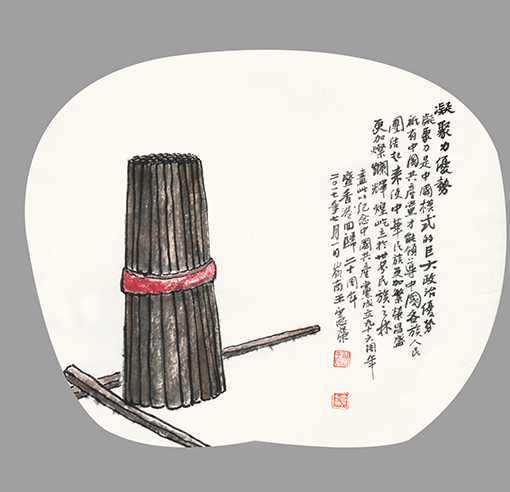 凝聚力優勢
凝聚力是中國模式的巨大政治優勢
祇有中國共產黨才能領導中國各族人民
團結起来使中華民族更加繁榮昌盛
更加燦斕輝煌屹立於世界民族之林
畫此以纪念中國共產黨成立九十六周年
暨香港回歸二十周年
二〇一七年七月一日
南王
榮